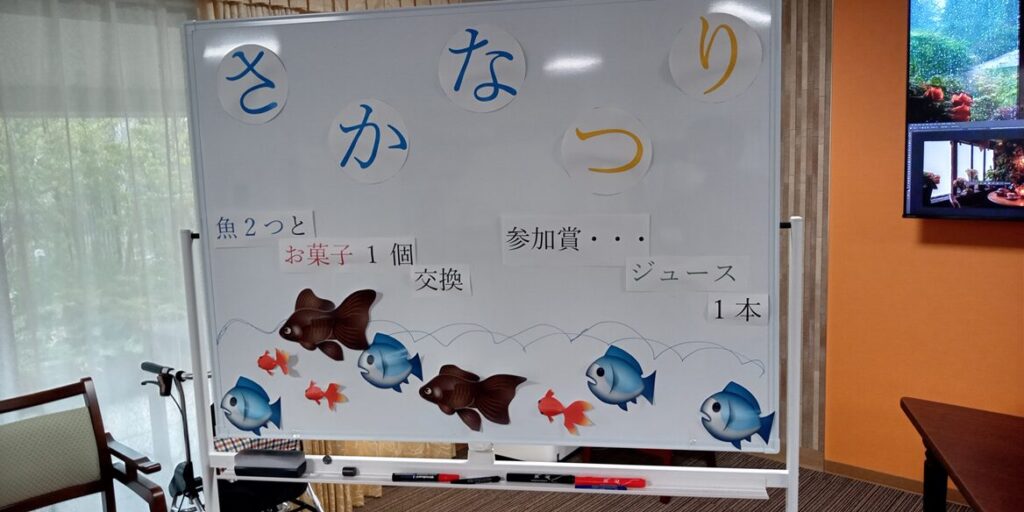 さかなつり
魚2つと
お菓子1個
交換
参加賞・・・
ジュース
1本